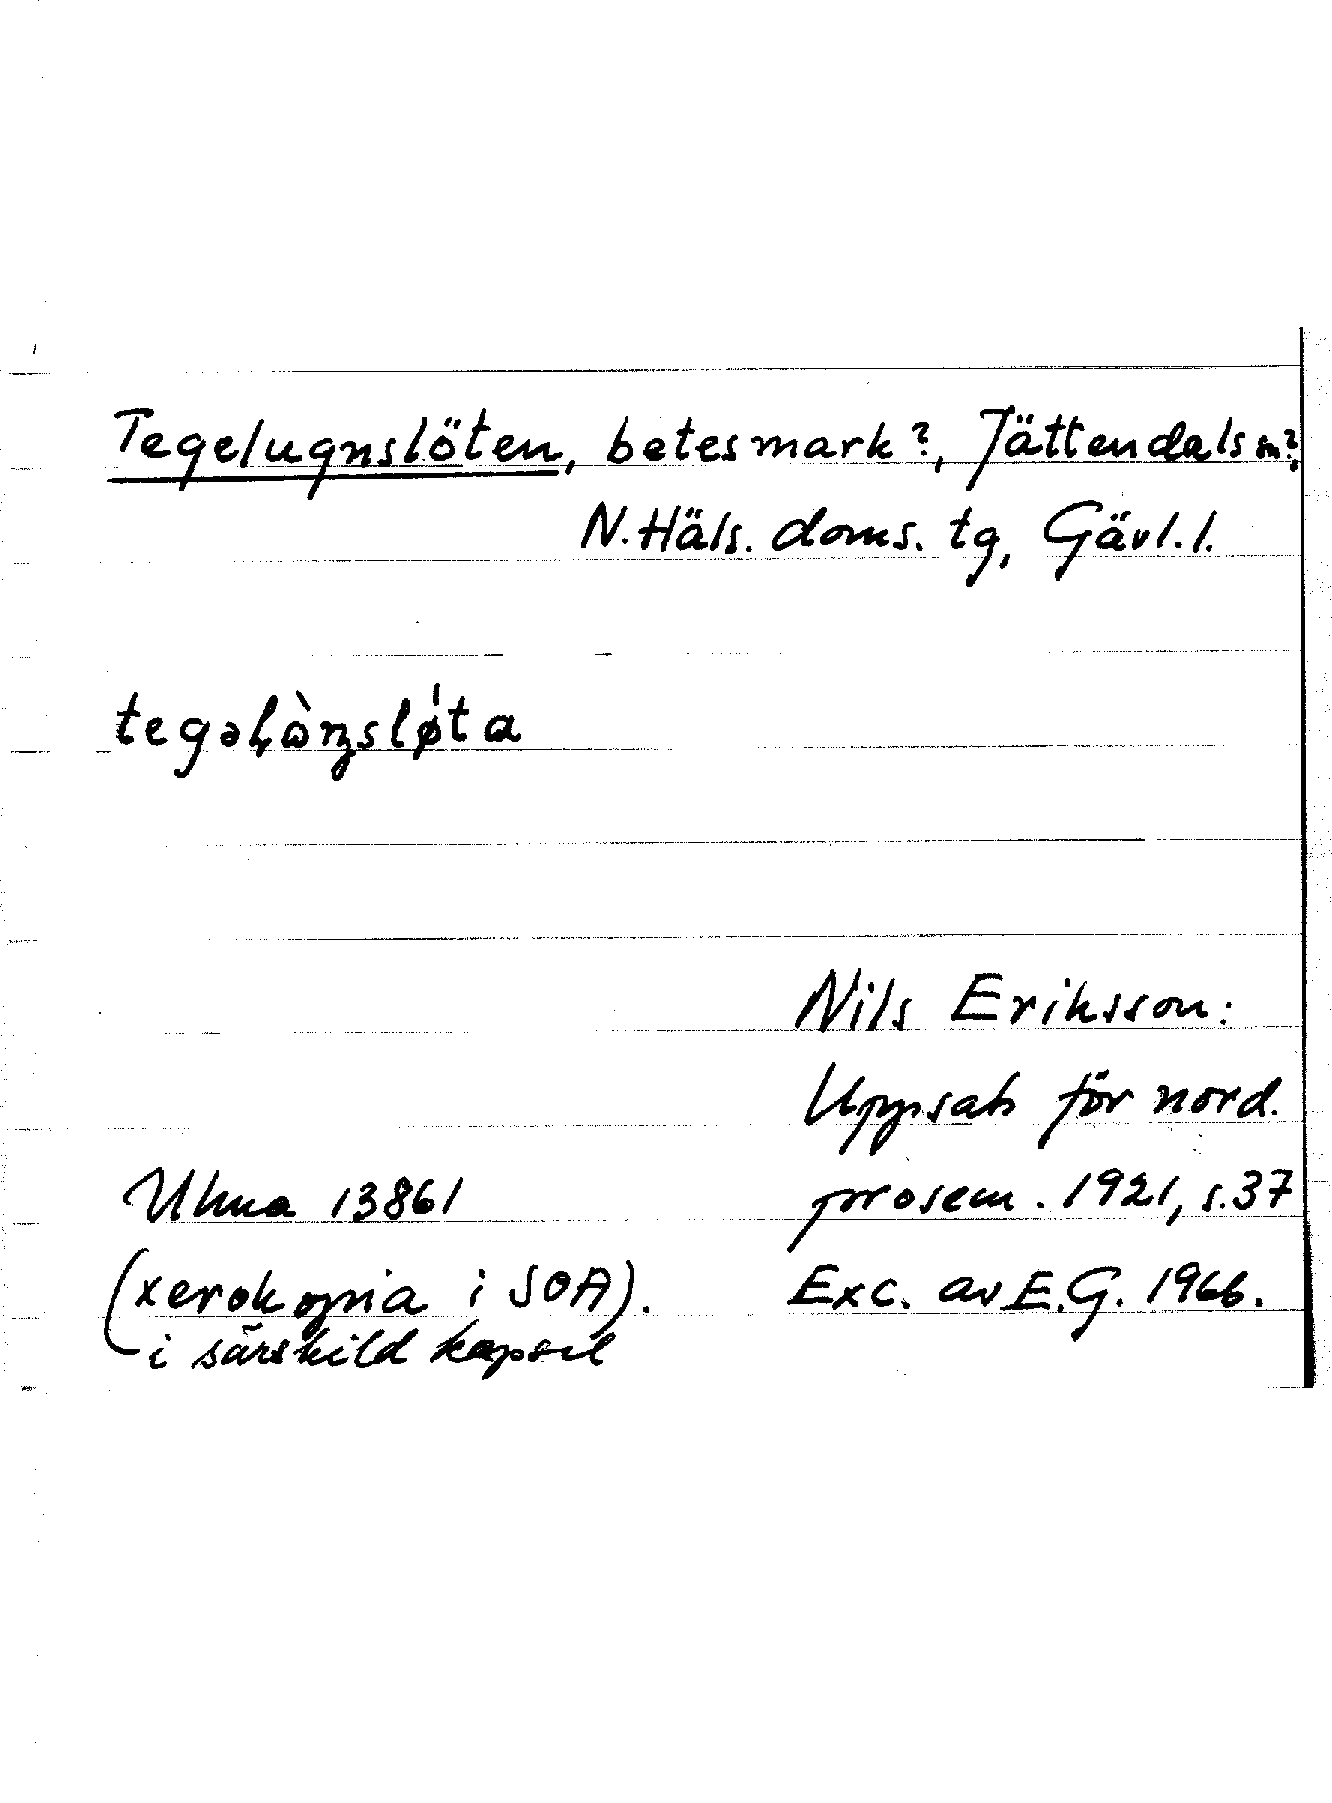 Tegelugnslöten, betesmark?, Jättendals sn?,
N. Häls. doms. tg, Gävl. l.
tegəḷὼŋsløta
Nils Eriksson:
Uppsats för nord.
Ulma 13861 prosem. 1921, s. 37
(xerokopia i SOA). Exc. av E.G. 1966.
i särskild kapsel